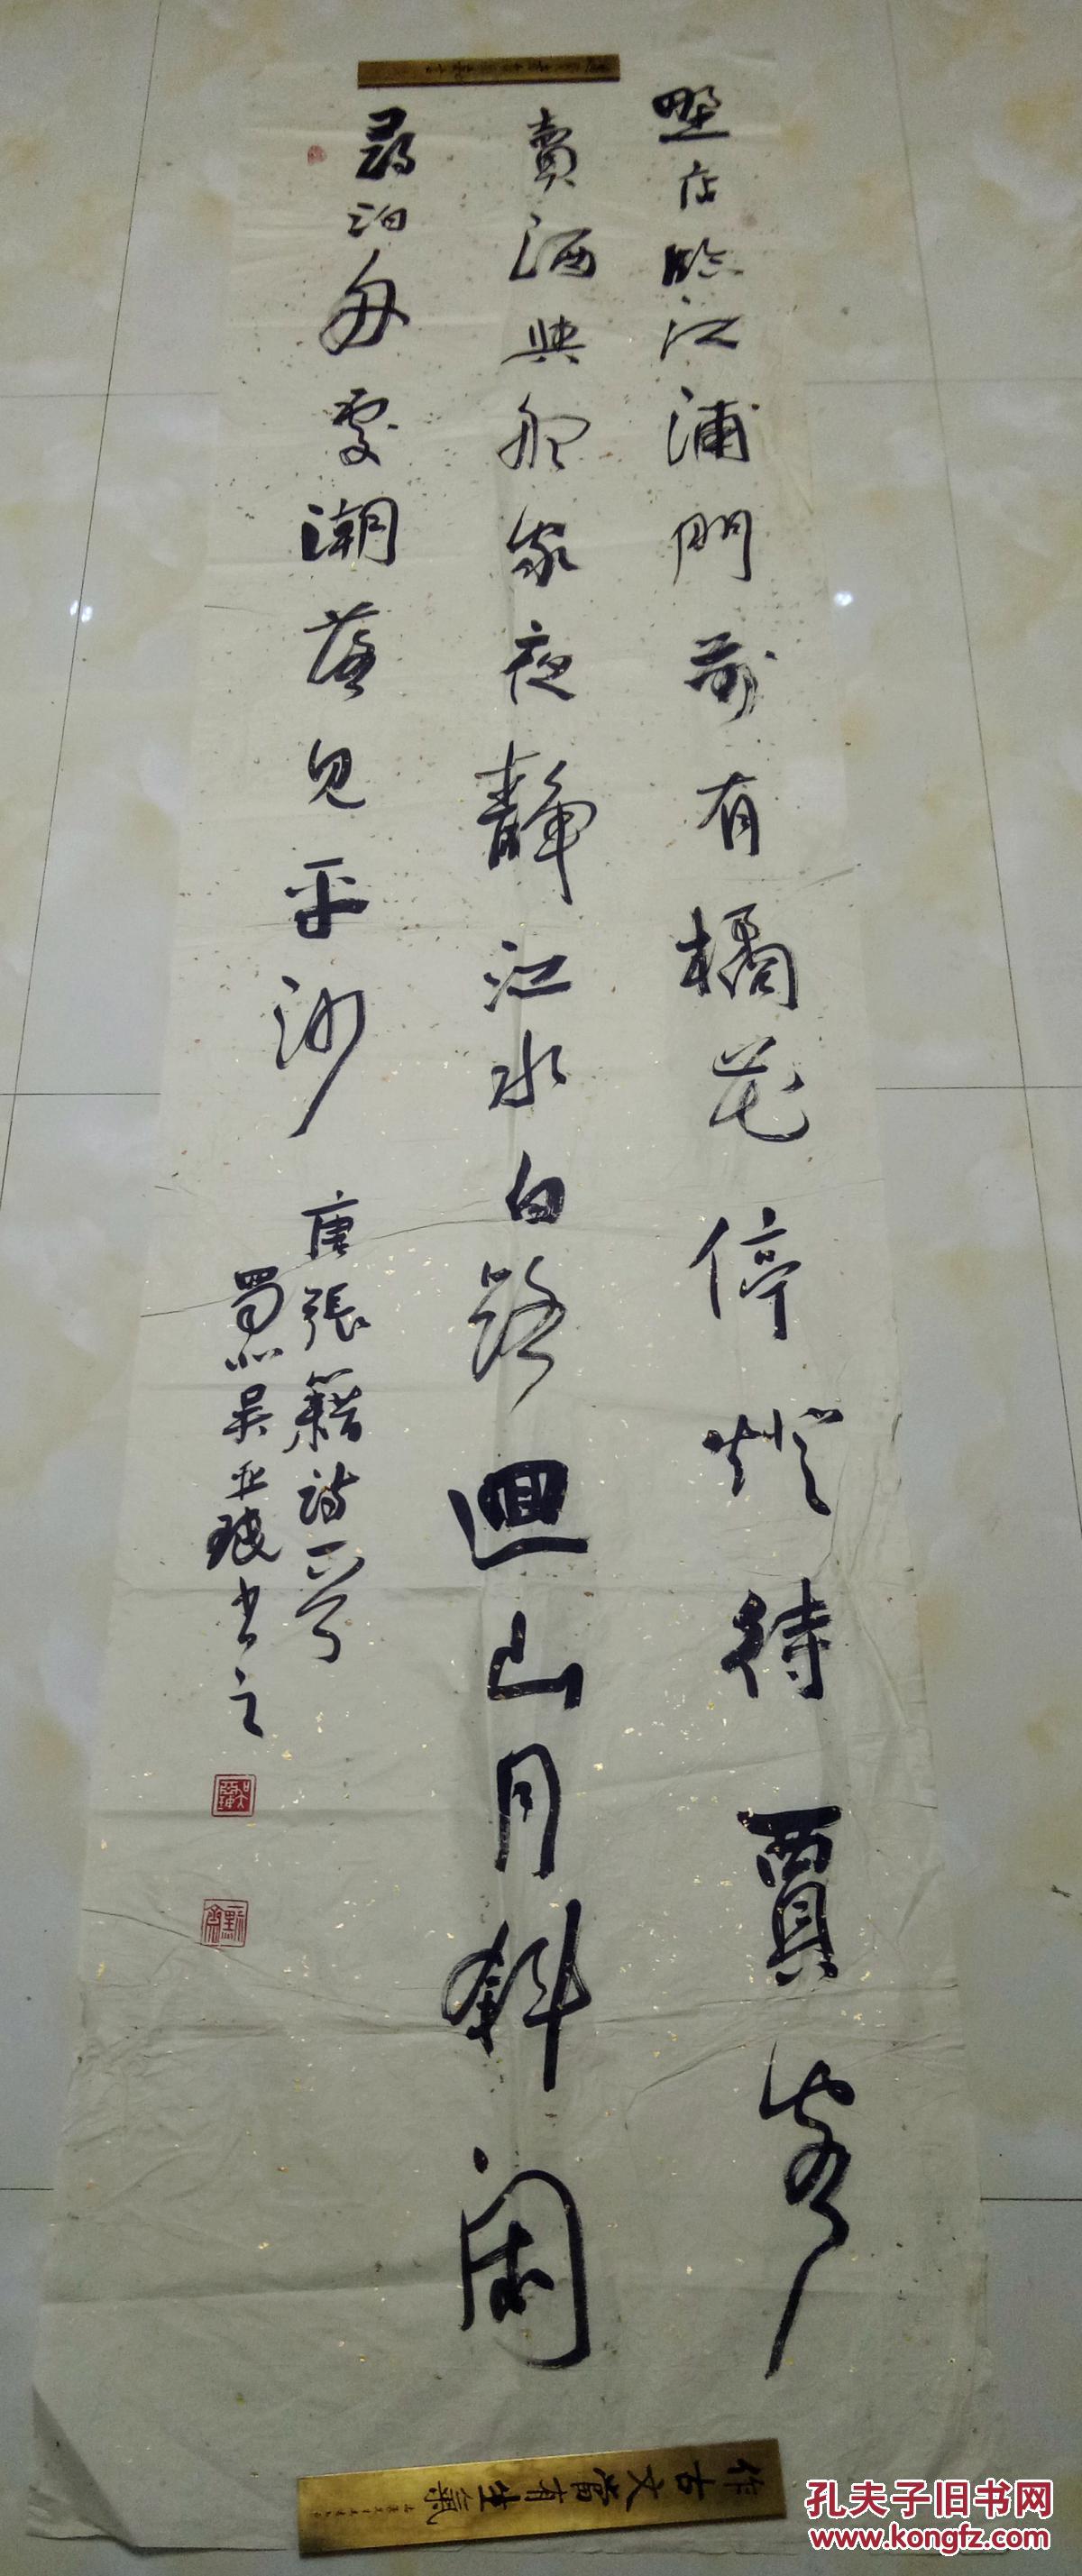 野店臨江浦門前有橘花停燈待賈客
賣酒與船家夜靜江水白路迴山月斜閑
尋泊船處潮落見平沙
唐張籍詩一首
蜀北吳亚玻书之
作古文常有生氣
孔夫子旧书网
www.kongfz.com